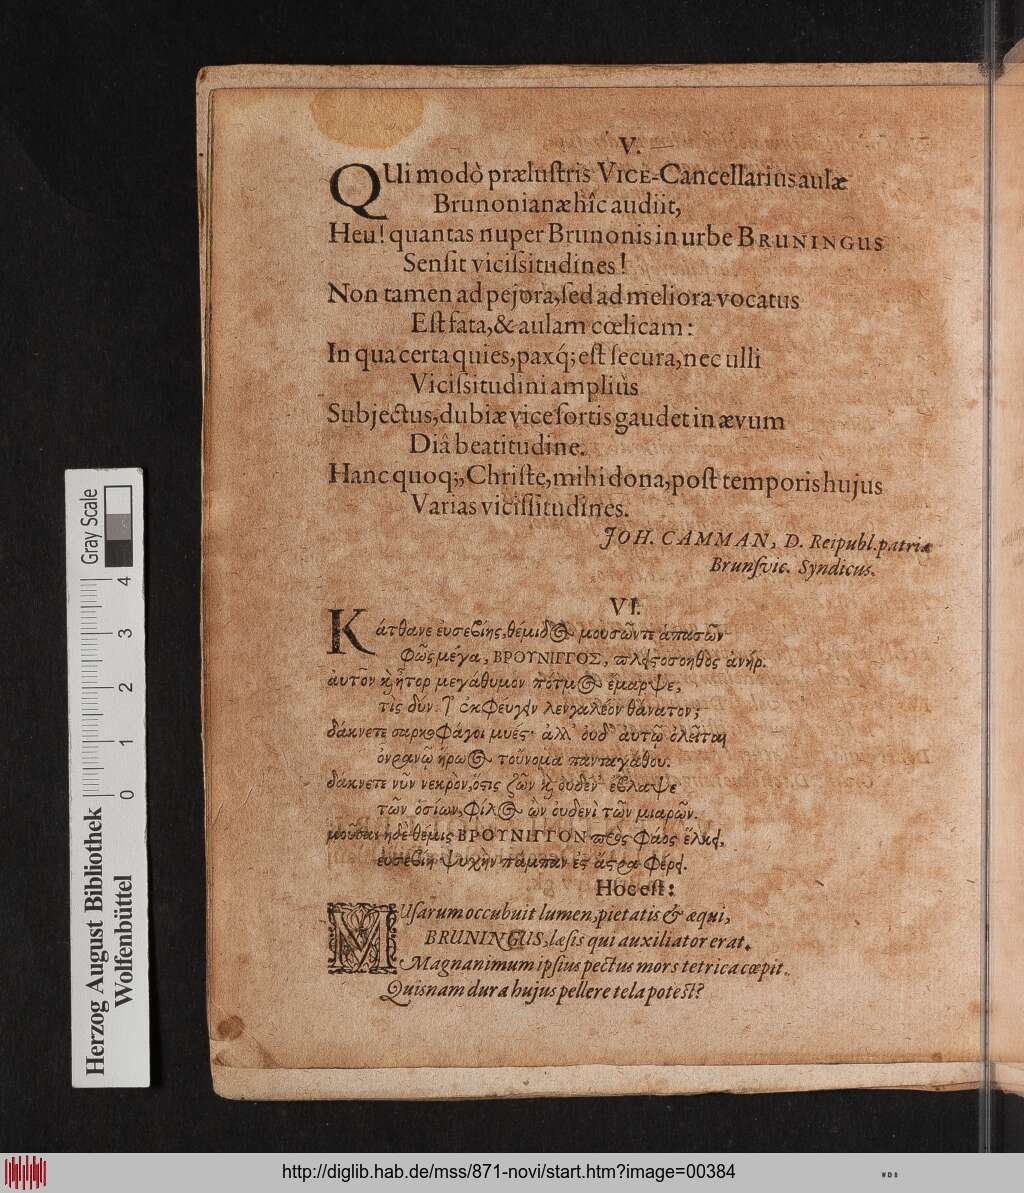 V.
QUi modò prælustris VICE-Cancellarius aulæ
Brunonianæ hîc audiit,
Heu! quantas nuper Brunonis in urbe BRUNINGUS
Sensit vicissitudines!
Non tamen ad pejora, sed ad meliora vocatus
Est fata, & aulam cœlicam:
In qua certa quies, paxq́; est secura, nec ulli
Vicissitudini ampliùs
Subjectus, dubiæ vice sortis gaudet in ævum
Diâ beatitudine.
Hanc quoq;, Christe, mihi dona, post temporis hujus
Varias vicissitudines.
JOH. CAMMAN, D. Reipubl. patriæ
Brunsvic. Syndicus.
VI.
Κάτθανε ἐυσεβίης, θέμιδος μουσῶντε ἁπασῶν
Φῶς μέγα, ΒΡΟΥΝΙΓΓΟΣ, πλειστοσηθὸς ἀνήρ.
ἀυτοῦ καὶ ἦτορ μεγάθυμον πότμος ἔμαρψε,
τὶς δύν. ἐκφέυγειν λευγαλέον θάνατον;
δάκνετε σαρκοφάγοι μυές· ἀλλ' ὀυδ' ἀυτῷ ὀλεῖται
ὀυρανῷ ἡρωος τοὔνομα πανταγάθου.
δάκνετε νῦν νεκρὸν, ὅστις ζῶν καὶ ὀυδὲν ἔβλαψε
τῶν ὁσίων, φίλος ὢν ὀυδενὶ τῶν μιαρῶν.
μοῦσαι ἠδὲ θέμις ΒΡΟΥΝΙΓΓΟΝ πρὸς φάος ἕλκει,
ἐυσεβίη ψυχὴν πάμπαν ἐς ἄστρα φέρει.
Hoc est:
MUsarum occubuit lumen, pietatis & æqui,
BRUNINGUS, læsis qui auxiliator erat.
Magnanimum ipsius pectus mors tetrica cœpit.
Quisnam dura hujus pellere tela potest?
Gray Scale
0 1 2 3 4
Herzog August Bibliothek
Wolfenbüttel
http://diglib.hab.de/mss/871-novi/start.htm?image=00384
WDB